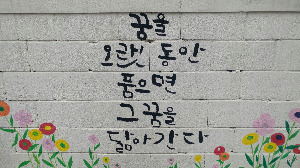 꿈을
오랫 동안
품으면
그 꿈을
닮아간다